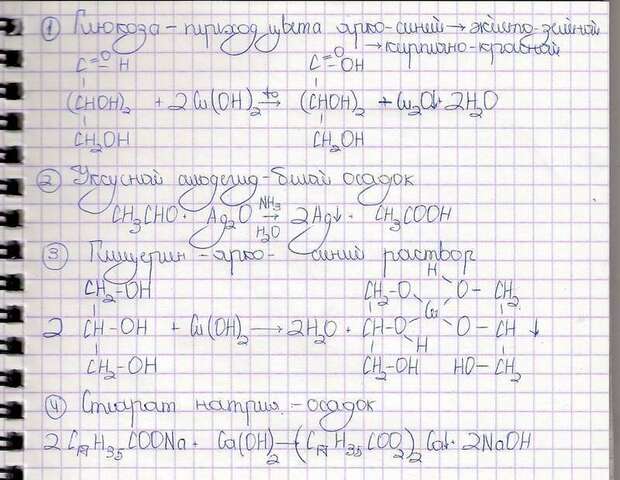 ① Глюкоза - переход цвета ярко-синий → жёлто-зелёный
→ кирпично-красный
C=O H C=O OH
(CHOH)₂ + 2Cu(OH)₂ →t° (CHOH)₂ + Cu₂O↓ + 2H₂O
CH₂OH CH₂OH
② Уксусный альдегид - белый осадок
CH₃CHO + Ag₂O →NH₃ H₂O 2Ag↓ + CH₃COOH
③ Глицерин - ярко-синий раствор
CH₂-OH CH₂-O H O-CH₂
2 CH-OH + Cu(OH)₂ → 2H₂O + CH-O Cu O-CH ↓
CH₂-OH H CH₂-OH HO-CH₂
④ Стеарат натрия - осадок
2C₁₇H₃₅COONa + Ca(OH)₂ → (C₁₇H₃₅COO)₂Ca↓ + 2NaOH